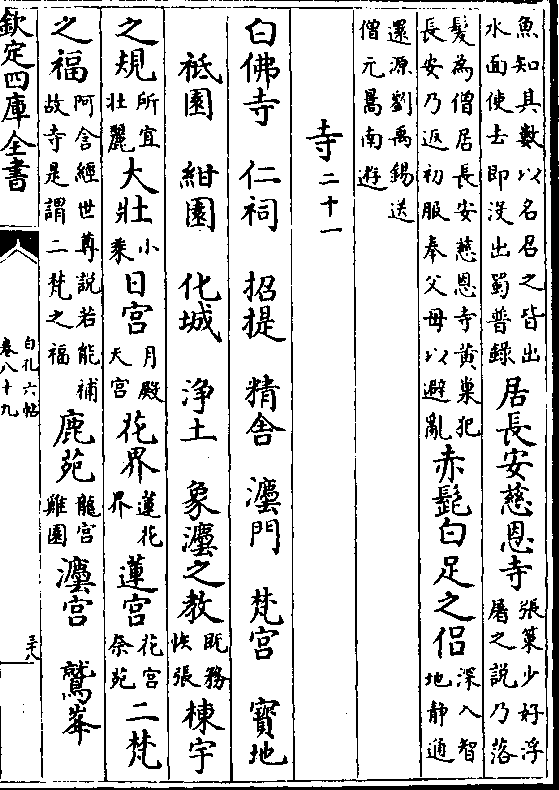 魚知其數以名召之皆出
水面使去即沒出蜀普錄
居長安慈恩寺
張策少好浮
屠之說乃落
髮為僧居長安慈恩寺黃巢犯
長安乃返初服奉父母以避亂
赤髭白足之侶
深入智
地靜通
還源劉禹錫送
僧元暠南遊
寺二十一
白佛寺 仁祠 招提 精舍 灋門 梵宮 寶地
祇園 紺園 化城 淨土 象灋之教
既務
恢張
棟宇
之規
所宜
壯麗
大壯
小
乘
日宮
月殿
天宮
花界
蓮花
界
蓮宮
花宮
柰苑
二梵
之福
阿含經世尊說若能補
故寺是謂二梵之福
鹿苑
龍宮
雞園
灋宮 鷲峯
欽定四庫全書
白孔六帖
卷八十九
三八